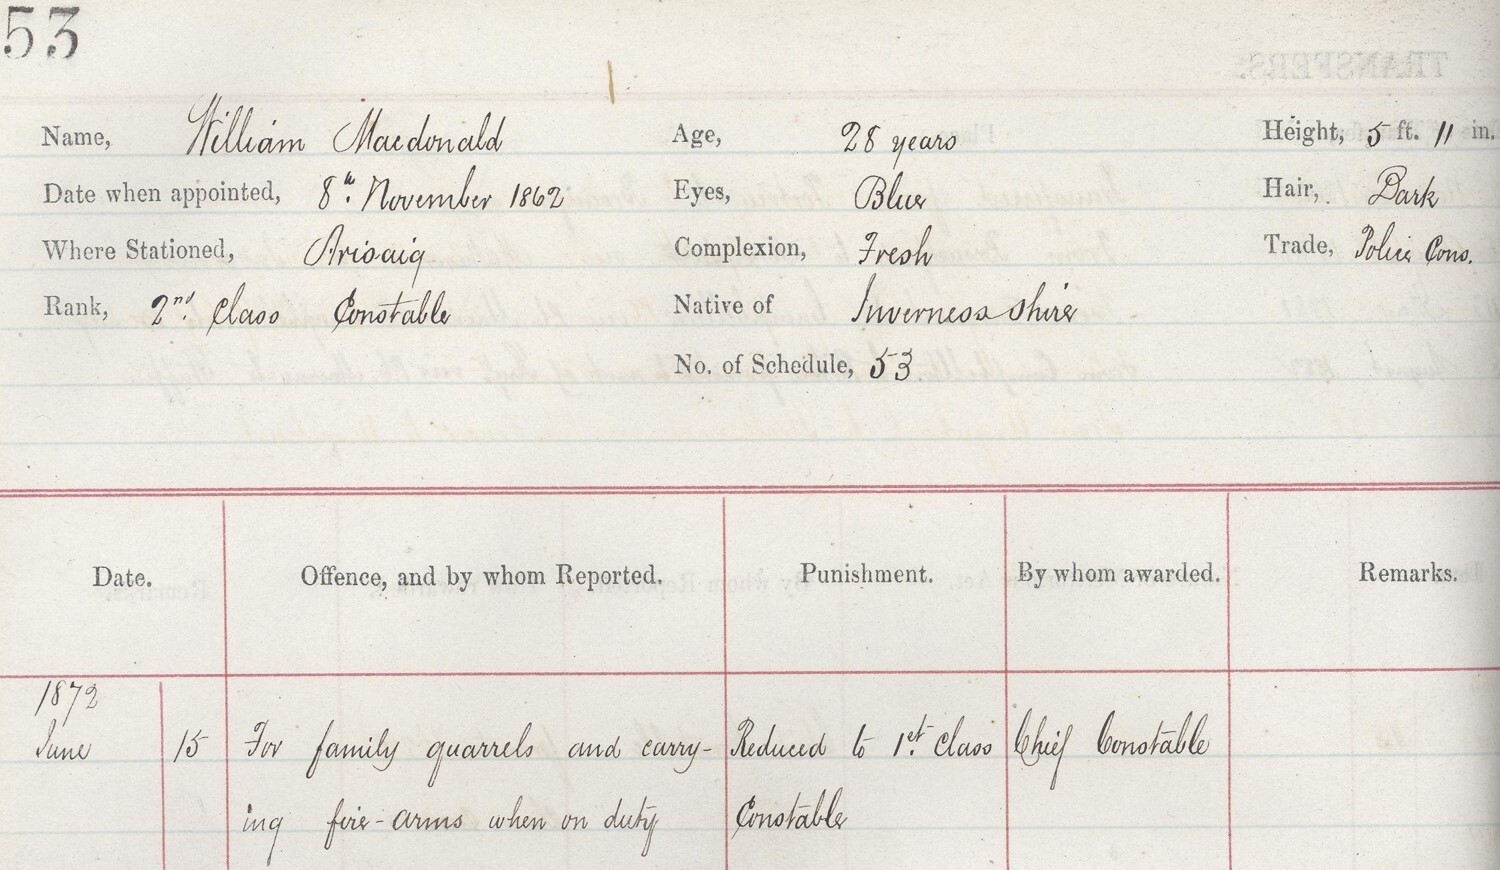 53
TRANSFERS.
Name, William Macdonald Age, 28 years Height, 5 ft. 11 in.
Date when appointed, 8th. November 1862 Eyes, Blue Hair, Dark
Where Stationed, Arisaig Complexion, Fresh Trade, Police Cons.
Rank, 2nd. Class Constable Native of Inverness shire
No. of Schedule, 53
Date. Offence, and by whom Reported. Punishment. By whom awarded. Remarks.
1872
June 15 For family quarrels and carry- Reduced to 1st. Class Chief Constable
ing fire-arms when on duty Constable